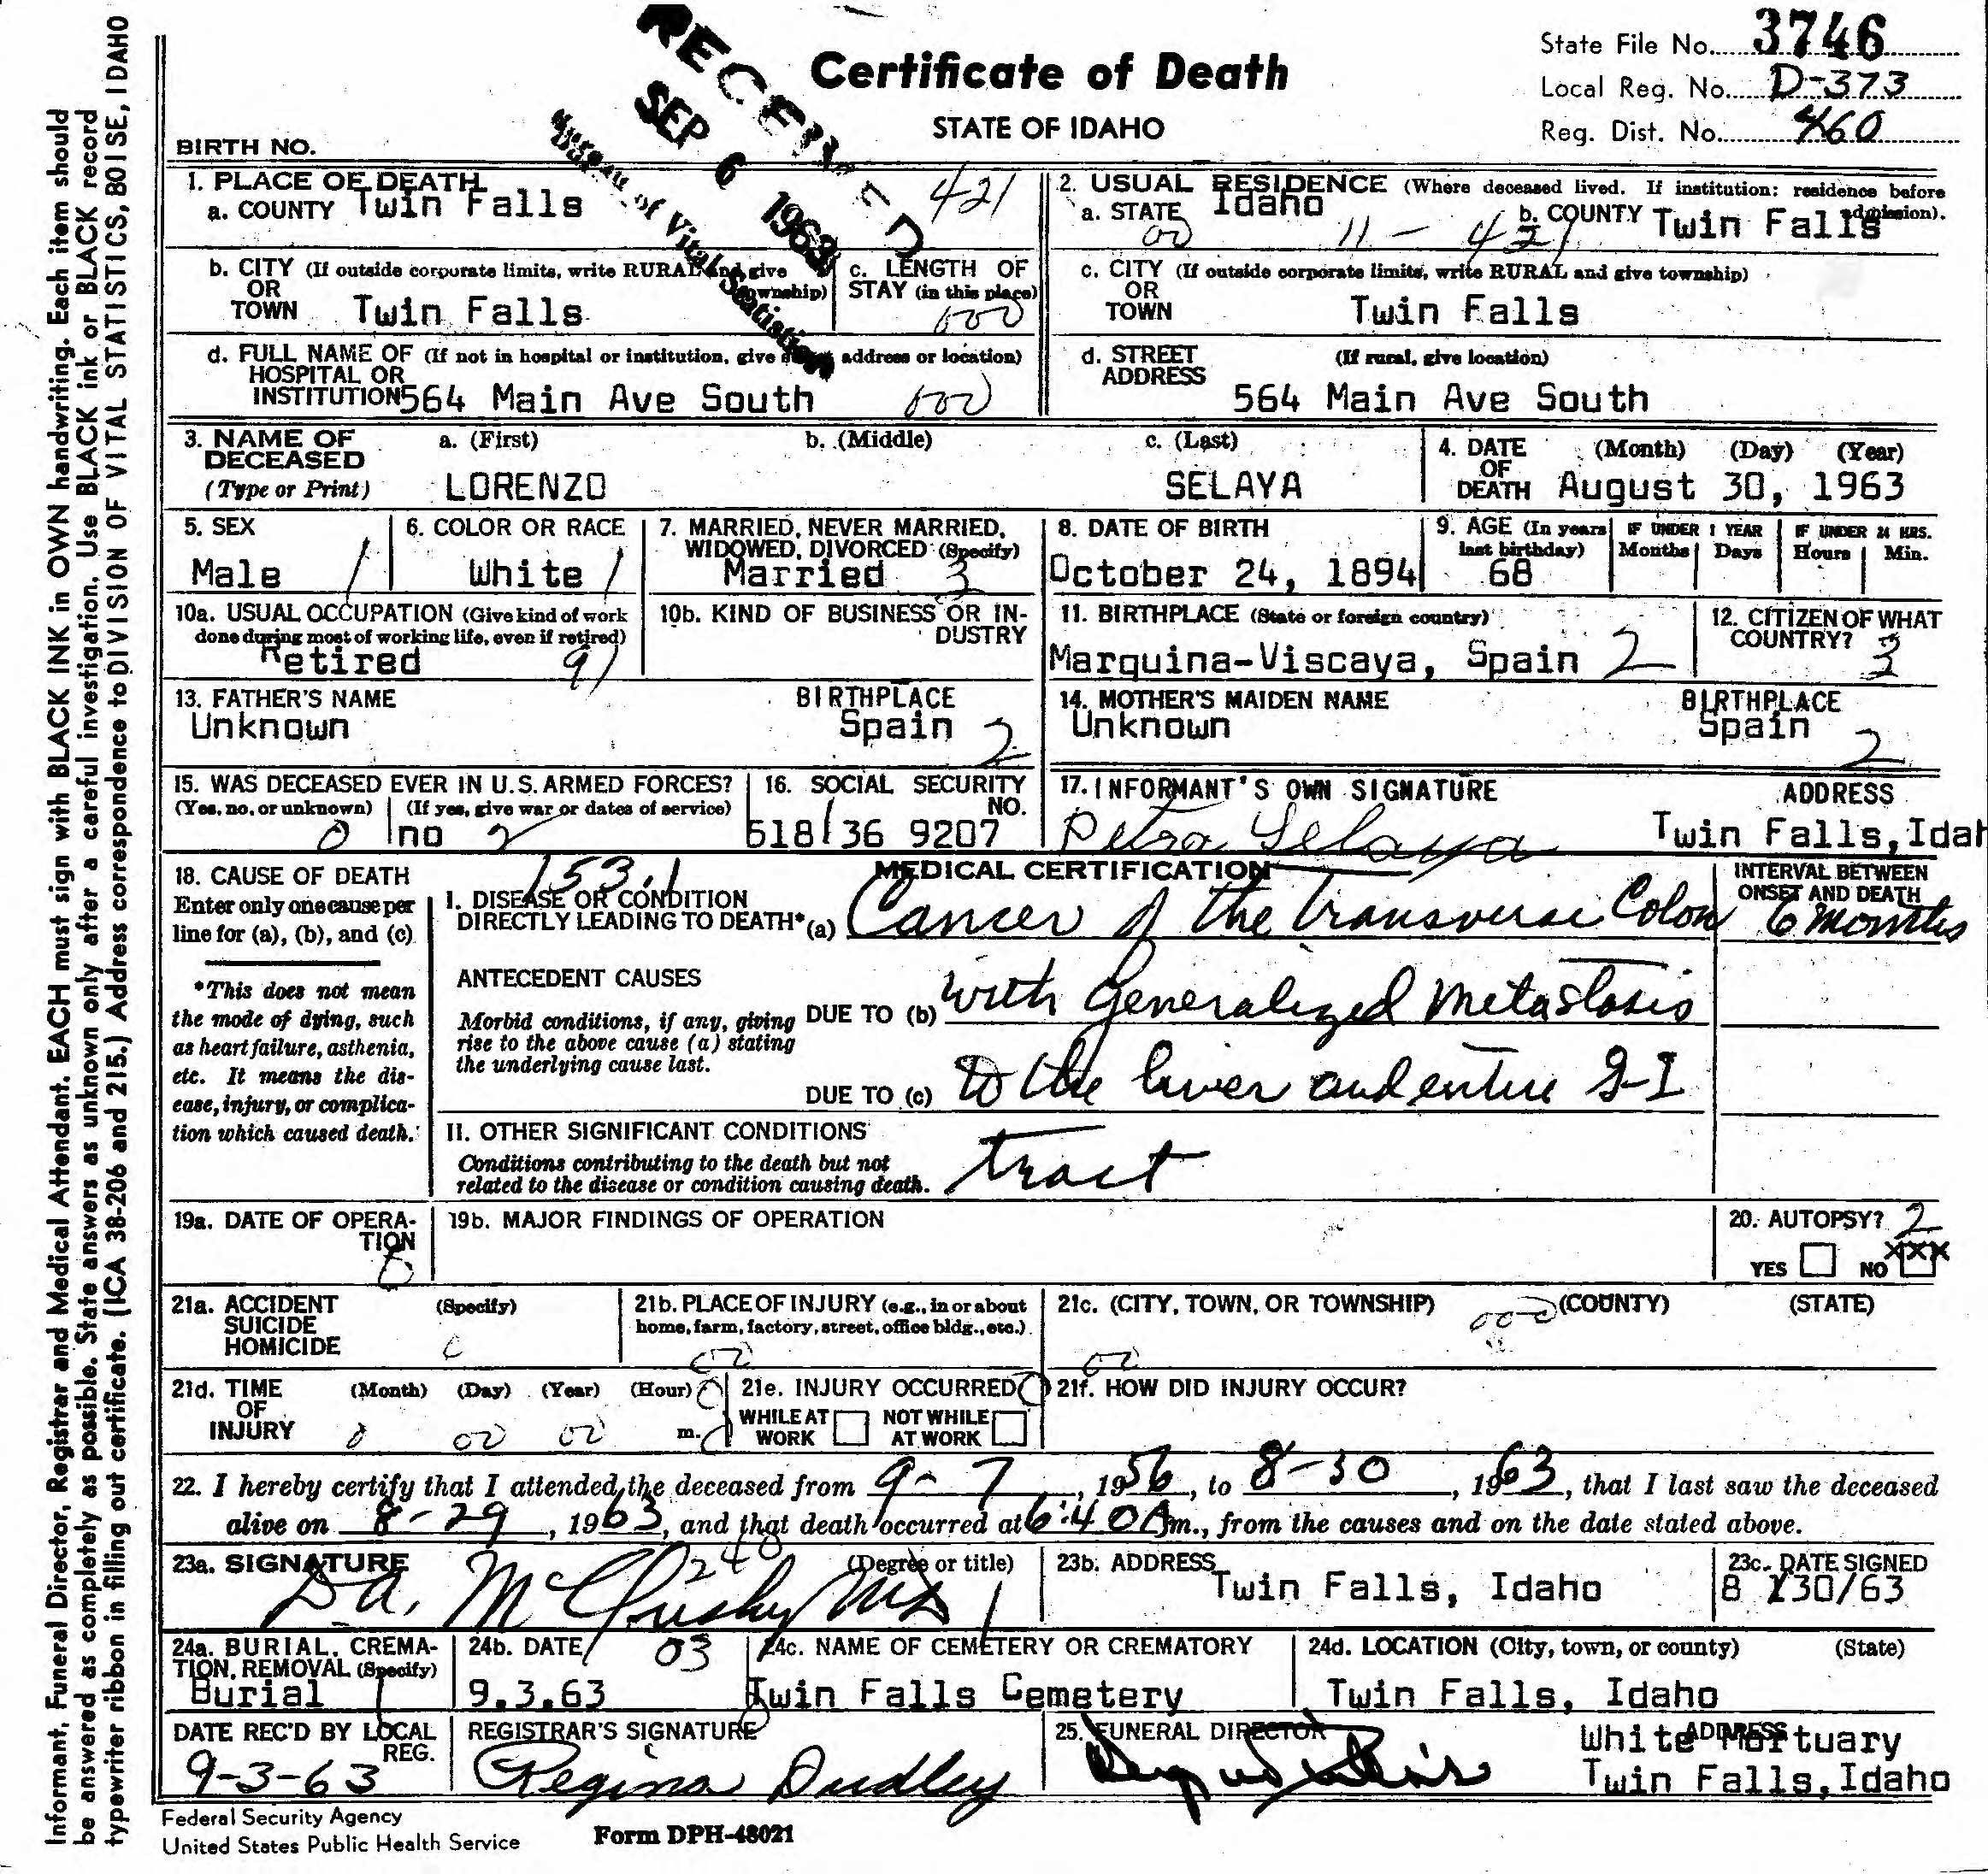 Informant, Funeral Director, Registrar and Medical Attendant. EACH must sign with BLACK INK in OWN handwriting. Each item should
be answered as completely as possible. State answers as unknown only after a careful investigation. Use BLACK ink or BLACK record
typewriter ribbon in filling out certificate. (ICA 38-206 and 215.) Address correspondence to DIVISION OF VITAL STATISTICS, BOISE, IDAHO
RECEIVED
SEP 6 1963
Bureau of Vital Statistics
Certificate of Death
STATE OF IDAHO
State File No. 3746
Local Reg. No. D-373
Reg. Dist. No. 460
BIRTH NO.
1. PLACE OF DEATH
a. COUNTY Twin Falls 421
b. CITY (If outside corporate limits, write RURAL and give township)
OR
TOWN Twin Falls
c. LENGTH OF
STAY (in this place)
000
d. FULL NAME OF (If not in hospital or institution, give address or location)
HOSPITAL OR
INSTITUTION 564 Main Ave South 000
2. USUAL RESIDENCE (Where deceased lived. If institution: residence before admission).
a. STATE Idaho
00 11 - 421
b. COUNTY Twin Falls
c. CITY (If outside corporate limits, write RURAL and give township)
OR
TOWN Twin Falls
d. STREET (If rural, give location)
ADDRESS
564 Main Ave South
3. NAME OF DECEASED
(Type or Print)
a. (First) b. (Middle) c. (Last)
LORENZO SELAYA
4. DATE OF DEATH (Month) (Day) (Year)
August 30, 1963
5. SEX
Male 1
6. COLOR OR RACE
White 1
7. MARRIED, NEVER MARRIED,
WIDOWED, DIVORCED (Specify)
Married 3
8. DATE OF BIRTH
October 24, 1894
9. AGE (In years last birthday)
68
IF UNDER 1 YEAR
Months Days
IF UNDER 24 HRS.
Hours Min.
10a. USUAL OCCUPATION (Give kind of work
done during most of working life, even if retired)
Retired 91
10b. KIND OF BUSINESS OR IN-
DUSTRY
11. BIRTHPLACE (State or foreign country)
Marquina-Viscaya, Spain 2
12. CITIZEN OF WHAT
COUNTRY? 3
13. FATHER'S NAME BIRTHPLACE
Unknown Spain 2
14. MOTHER'S MAIDEN NAME BIRTHPLACE
Unknown Spain 2
15. WAS DECEASED EVER IN U.S. ARMED FORCES?
(Yes, no, or unknown) (If yes, give war or dates of service)
0 no 2
16. SOCIAL SECURITY
NO.
518 36 9207
17. INFORMANT'S OWN SIGNATURE ADDRESS
Petra Selaya Twin Falls, Idah
18. CAUSE OF DEATH
Enter only one cause per
line for (a), (b), and (c)
*This does not mean
the mode of dying, such
as heart failure, asthenia,
etc. It means the dis-
ease, injury, or complica-
tion which caused death.
153.1
MEDICAL CERTIFICATION
INTERVAL BETWEEN
ONSET AND DEATH
I. DISEASE OR CONDITION
DIRECTLY LEADING TO DEATH* (a) Cancer of the transverse Colon 6 months
ANTECEDENT CAUSES
Morbid conditions, if any, giving
rise to the above cause (a) stating
the underlying cause last.
DUE TO (b) with Generalized metastasis
DUE TO (c) to the liver and entire G-I
II. OTHER SIGNIFICANT CONDITIONS
Conditions contributing to the death but not
related to the disease or condition causing death.
tract
19a. DATE OF OPERA-
TION
0
19b. MAJOR FINDINGS OF OPERATION
20. AUTOPSY? 2
YES NO XXX
21a. ACCIDENT (Specify)
SUICIDE
HOMICIDE
21b. PLACE OF INJURY (e.g., in or about
home, farm, factory, street, office bldg., etc.)
00
21c. (CITY, TOWN, OR TOWNSHIP) (COUNTY) (STATE)
00 000
21d. TIME (Month) (Day) (Year) (Hour)
OF
INJURY 0 00 00 m.
21e. INJURY OCCURRED
WHILE AT WORK NOT WHILE AT WORK
21f. HOW DID INJURY OCCUR?
22. I hereby certify that I attended the deceased from 9-7, 1956, to 8-30, 1963, that I last saw the deceased
alive on 8-29, 1963, and that death occurred at 6:40 A m., from the causes and on the date stated above.
23a. SIGNATURE (Degree or title)
McClusky MD
23b. ADDRESS
Twin Falls, Idaho
23c. DATE SIGNED
8/30/63
24a. BURIAL, CREMA-
TION, REMOVAL (Specify)
Burial
24b. DATE 03
9.3.63
24c. NAME OF CEMETERY OR CREMATORY
Twin Falls Cemetery
24d. LOCATION (City, town, or county) (State)
Twin Falls, Idaho
DATE REC'D BY LOCAL
REG.
9-3-63
REGISTRAR'S SIGNATURE
Regina Dudley
25. FUNERAL DIRECTOR ADDRESS
White Mortuary
Twin Falls, Idaho
Federal Security Agency
United States Public Health Service
Form DPH-48021